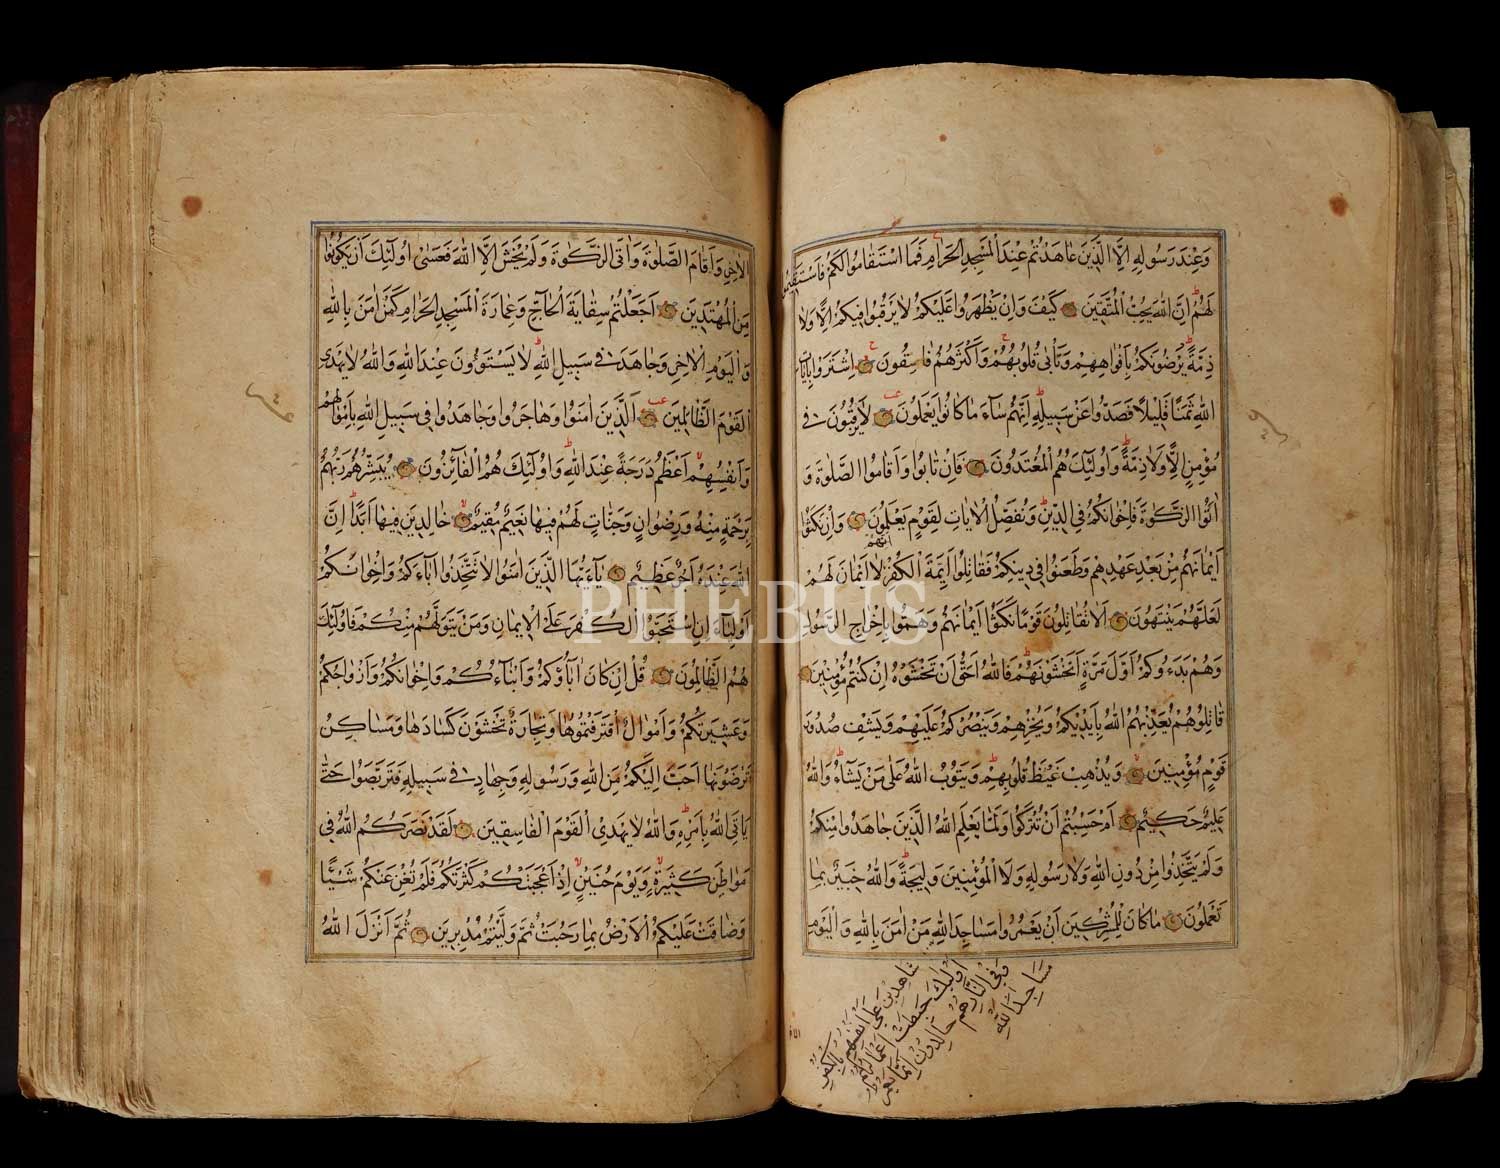 وَعِنْدَ رَسُولِهِ اِلَّا الَّذِينَ عَاهَدْتُمْ عِنْدَ الْمَسْجِدِ الْحَرَامِ فَمَا اسْتَقَامُوا لَكُمْ فَاسْتَقِيمُوا
لَهُمْ اِنَّ اللّٰهَ يُحِبُّ الْمُتَّقِينَ كَيْفَ وَاِنْ يَظْهَرُوا عَلَيْكُمْ لَا يَرْقُبُوا فِيكُمْ اِلًّا وَلَا
ذِمَّةً يُرْضُونَكُمْ بِاَفْوَاهِهِمْ وَتَأْبٰى قُلُوبُهُمْ وَاَكْثَرُهُمْ فَاسِقُونَ اِشْتَرَوْا بِاٰيَاتِ
اللّٰهِ ثَمَنًا قَلِيلًا فَصَدُّوا عَنْ سَبِيلِهِ اِنَّهُمْ سَاءَ مَا كَانُوا يَعْمَلُونَ لَا يَرْقُبُونَ فِي
مُؤْمِنٍ اِلًّا وَلَا ذِمَّةً وَاُولٰئِكَ هُمُ الْمُعْتَدُونَ فَاِنْ تَابُوا وَاَقَامُوا الصَّلٰوةَ وَ
اٰتَوُا الزَّكٰوةَ فَاِخْوَانُكُمْ فِي الدِّينِ وَنُفَصِّلُ الْاٰيَاتِ لِقَوْمٍ يَعْلَمُونَ وَاِنْ نَكَثُوا
اَيْمَانَهُمْ مِنْ بَعْدِ عَهْدِهِمْ وَطَعَنُوا فِي دِينِكُمْ فَقَاتِلُوا اَئِمَّةَ الْكُفْرِ اِنَّهُمْ لَا اَيْمَانَ لَهُمْ
لَعَلَّهُمْ يَنْتَهُونَ اَلَا تُقَاتِلُونَ قَوْمًا نَكَثُوا اَيْمَانَهُمْ وَهَمُّوا بِاِخْرَاجِ الرَّسُولِ
وَهُمْ بَدَءُوكُمْ اَوَّلَ مَرَّةٍ اَتَخْشَوْنَهُمْ فَاللّٰهُ اَحَقُّ اَنْ تَخْشَوْهُ اِنْ كُنْتُمْ مُؤْمِنِينَ
قَاتِلُوهُمْ يُعَذِّبْهُمُ اللّٰهُ بِاَيْدِيكُمْ وَيُخْزِهِمْ وَيَنْصُرْكُمْ عَلَيْهِمْ وَيَشْفِ صُدُورَ
قَوْمٍ مُؤْمِنِينَ وَيُذْهِبْ غَيْظَ قُلُوبِهِمْ وَيَتُوبُ اللّٰهُ عَلٰى مَنْ يَشَاءُ وَاللّٰهُ
عَلِيمٌ حَكِيمٌ اَمْ حَسِبْتُمْ اَنْ تُتْرَكُوا وَلَمَّا يَعْلَمِ اللّٰهُ الَّذِينَ جَاهَدُوا مِنْكُمْ
وَلَمْ يَتَّخِذُوا مِنْ دُونِ اللّٰهِ وَلَا رَسُولِهِ وَلَا الْمُؤْمِنِينَ وَلِيجَةً وَاللّٰهُ خَبِيرٌ بِمَا
تَعْمَلُونَ مَا كَانَ لِلْمُشْرِكِينَ اَنْ يَعْمُرُوا مَسَاجِدَ اللّٰهِ مَنْ اٰمَنَ بِاللّٰهِ وَالْيَوْمِ
شَاهِدِينَ عَلٰى اَنْفُسِهِمْ بِالْكُفْرِ
اُولٰئِكَ حَبِطَتْ اَعْمَالُهُمْ
وَفِي النَّارِ هُمْ خَالِدُونَ اِنَّمَا يَعْمُرُ
مَسَاجِدَ اللّٰهِ
الْاٰخِرِ وَاَقَامَ الصَّلٰوةَ وَاٰتَى الزَّكٰوةَ وَلَمْ يَخْشَ اِلَّا اللّٰهَ فَعَسٰى اُولٰئِكَ اَنْ يَكُونُوا
مِنَ الْمُهْتَدِينَ اَجَعَلْتُمْ سِقَايَةَ الْحَاجِّ وَعِمَارَةَ الْمَسْجِدِ الْحَرَامِ كَمَنْ اٰمَنَ بِاللّٰهِ
وَالْيَوْمِ الْاٰخِرِ وَجَاهَدَ فِي سَبِيلِ اللّٰهِ لَا يَسْتَوُونَ عِنْدَ اللّٰهِ وَاللّٰهُ لَا يَهْدِي
الْقَوْمَ الظَّالِمِينَ اَلَّذِينَ اٰمَنُوا وَهَاجَرُوا وَجَاهَدُوا فِي سَبِيلِ اللّٰهِ بِاَمْوَالِهِمْ
وَاَنْفُسِهِمْ اَعْظَمُ دَرَجَةً عِنْدَ اللّٰهِ وَاُولٰئِكَ هُمُ الْفَائِزُونَ يُبَشِّرُهُمْ رَبُّهُمْ
بِرَحْمَةٍ مِنْهُ وَرِضْوَانٍ وَجَنَّاتٍ لَهُمْ فِيهَا نَعِيمٌ مُقِيمٌ خَالِدِينَ فِيهَا اَبَدًا اِنَّ
اللّٰهَ عِنْدَهُ اَجْرٌ عَظِيمٌ يَاءَيُّهَا الَّذِينَ اٰمَنُوا لَا تَتَّخِذُوا اٰبَاءَكُمْ وَاِخْوَانَكُمْ
اَوْلِيَاءَ اِنِ اسْتَحَبُّوا الْكُفْرَ عَلَى الْاِيمَانِ وَمَنْ يَتَوَلَّهُمْ مِنْكُمْ فَاُولٰئِكَ
هُمُ الظَّالِمُونَ قُلْ اِنْ كَانَ اٰبَاؤُكُمْ وَاَبْنَاءُكُمْ وَاِخْوَانُكُمْ وَاَزْوَاجُكُمْ
وَعَشِيرَتُكُمْ وَاَمْوَالٌ اقْتَرَفْتُمُوهَا وَتِجَارَةٌ تَخْشَوْنَ كَسَادَهَا وَمَسَاكِنُ
تَرْضَوْنَهَا اَحَبَّ اِلَيْكُمْ مِنَ اللّٰهِ وَرَسُولِهِ وَجِهَادٍ فِي سَبِيلِهِ فَتَرَبَّصُوا حَتّٰى
يَأْتِيَ اللّٰهُ بِاَمْرِهِ وَاللّٰهُ لَا يَهْدِي الْقَوْمَ الْفَاسِقِينَ لَقَدْ نَصَرَكُمُ اللّٰهُ فِي
مَوَاطِنَ كَثِيرَةٍ وَيَوْمَ حُنَيْنٍ اِذْ اَعْجَبَتْكُمْ كَثْرَتُكُمْ فَلَمْ تُغْنِ عَنْكُمْ شَيْئًا
وَضَاقَتْ عَلَيْكُمُ الْاَرْضُ بِمَا رَحُبَتْ ثُمَّ وَلَّيْتُمْ مُدْبِرِينَ ثُمَّ اَنْزَلَ اللّٰهُ
PHEBUS